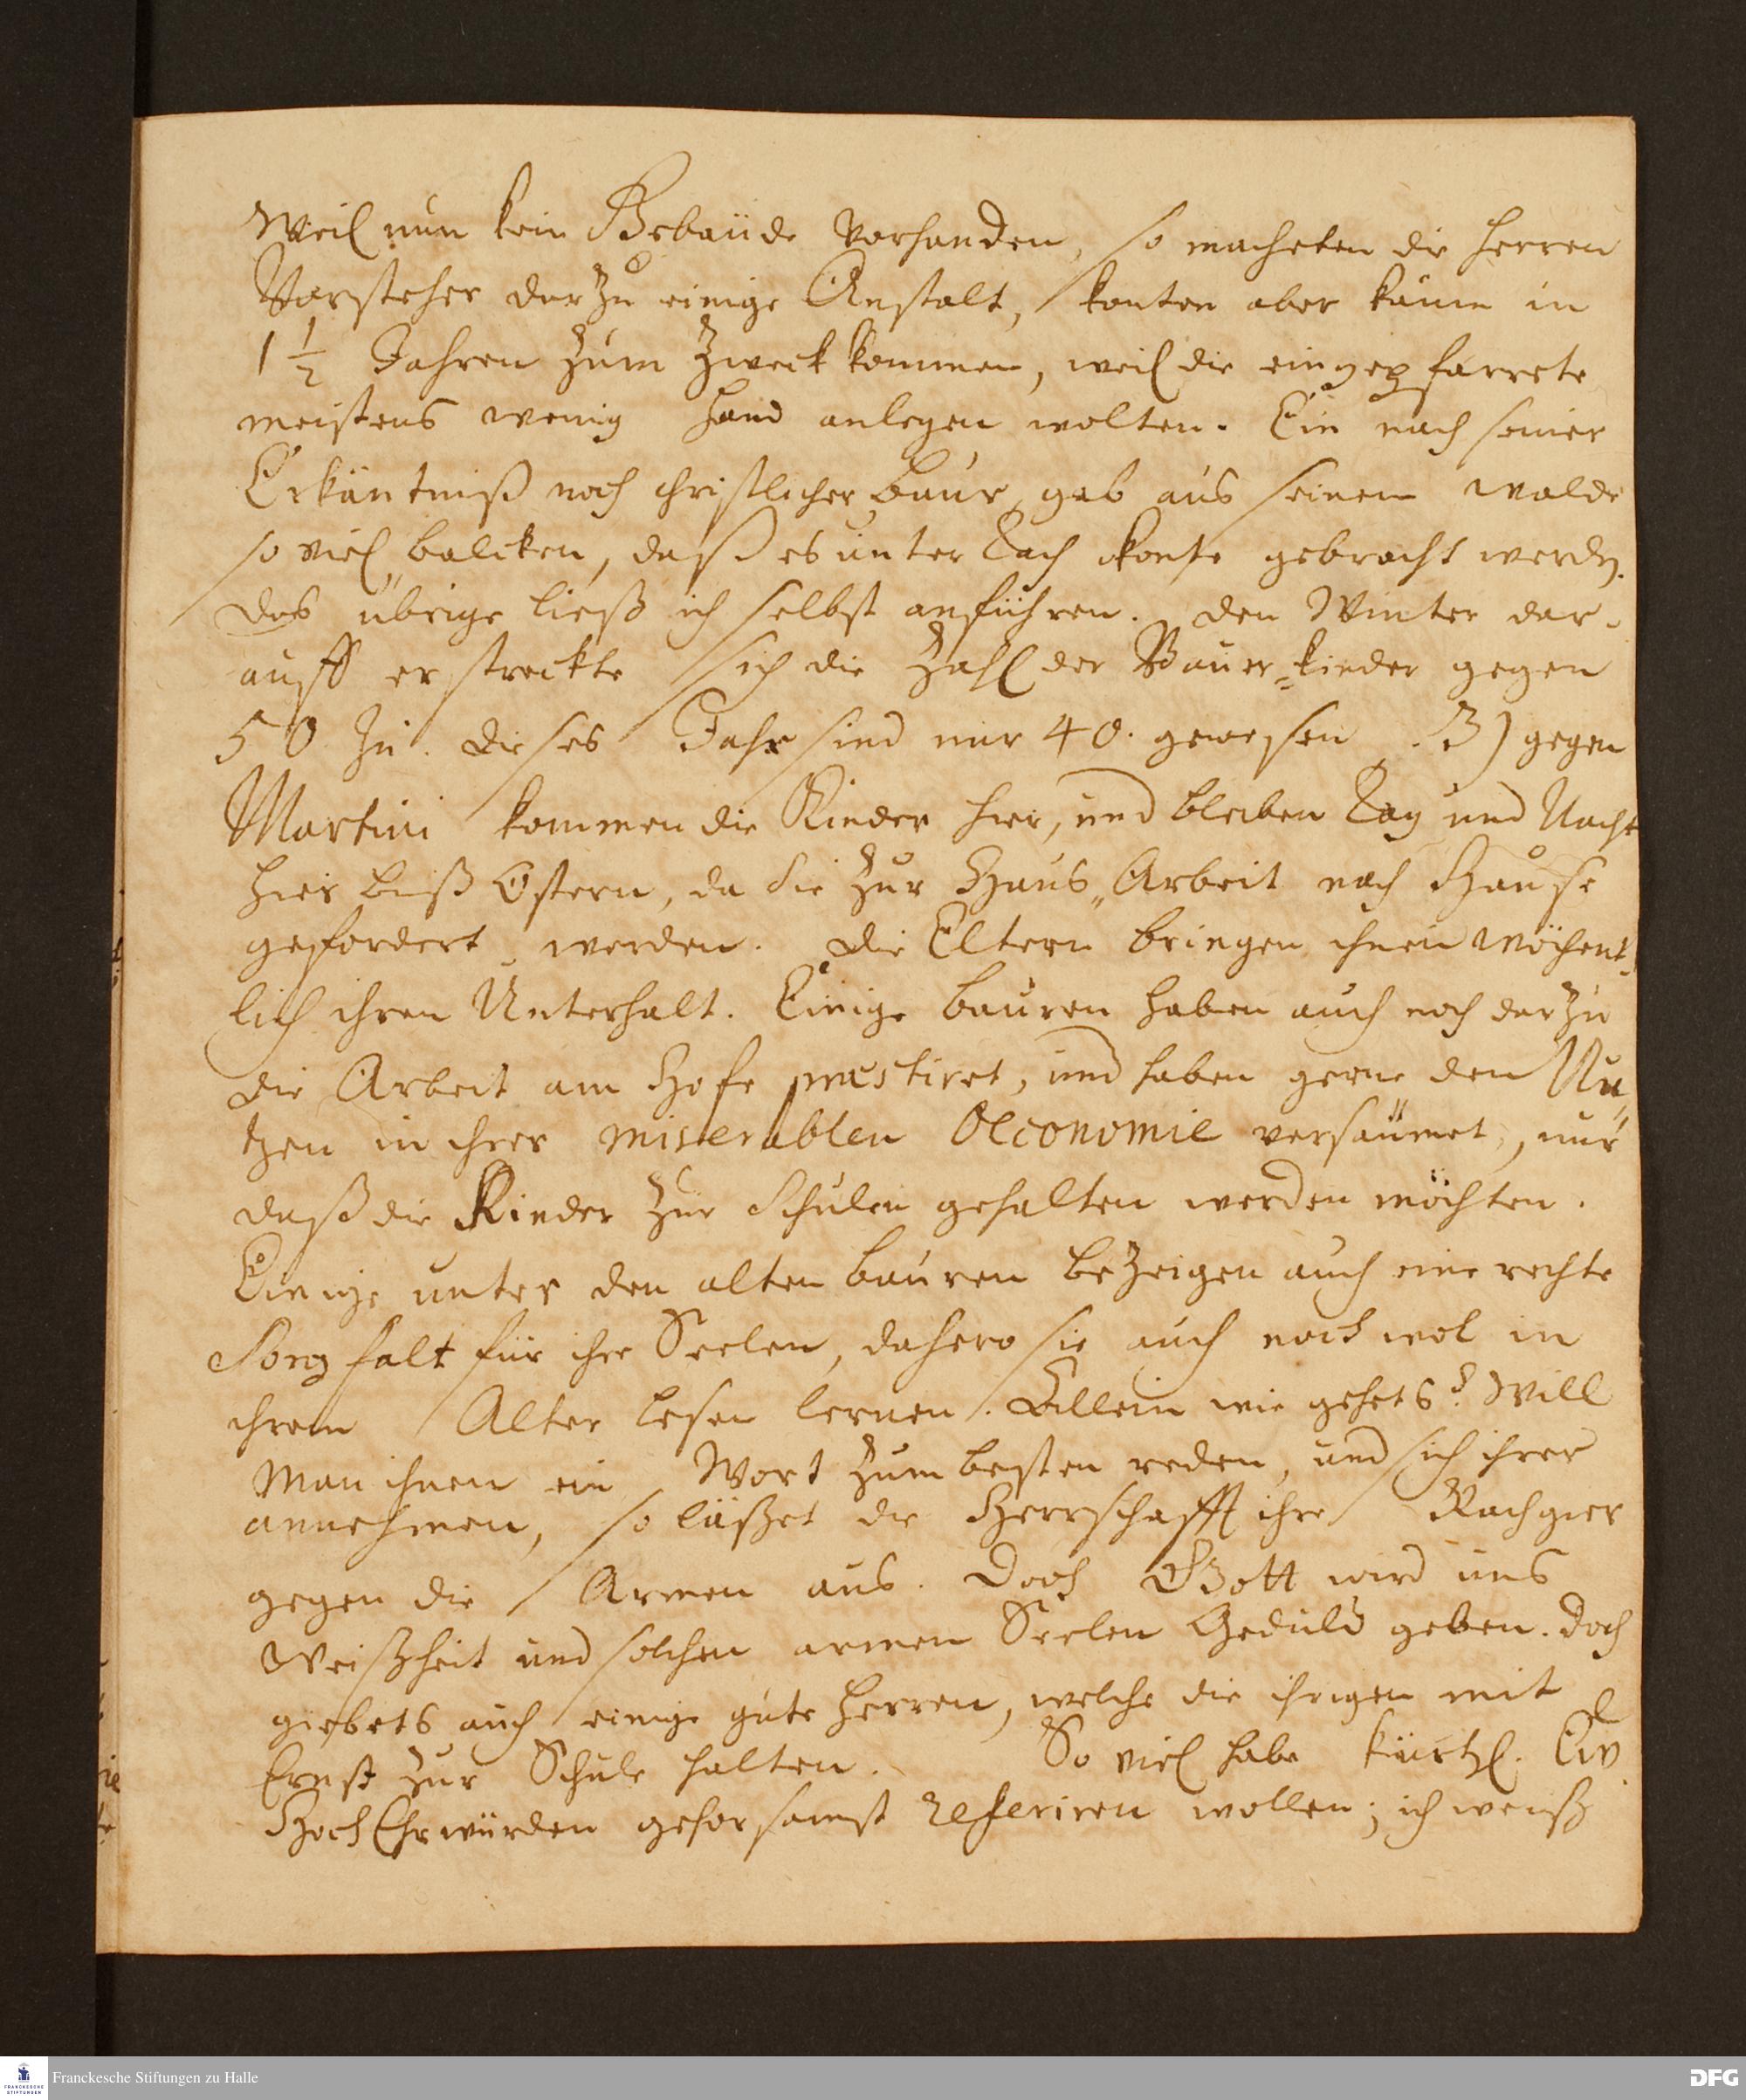 Weil nun kein Gebaüde vorhanden, so macheten die Herren
Vorsteher darzu einige Anstalt, konten aber kaum in
1 1/2 Jahren zum Zweck kommen, weil die eingepfarrete
meistens wenig Hand anlegen wolten. Ein nach seiner
Erkäntniß noch christlicher baur, gab aus seinem walde
so viel balcken, daß es unter Dach konte gebracht werdn.
das übrige ließ ich selbst anführen. den Winter dar-
auff erstreckte sich die Zahl der Bauer-kinder gegen
50 zu. dieses Jahr sind nur 40. gewesen. 3) gegen
Martini kommen die Kinder hier, und bleiben Tag und Nacht
hier biß Ostern, da Sie zur Haus-Arbeit nach Hause
gefordert werden. die Eltern bringen ihnen wöchent-
lich ihren Unterhalt. Einige bauren haben auch noch darzu
die Arbeit am Hofe præstiret, und haben gerne den Nu-
tzen in ihrer miserablen Oeconomie versaümet, nur
daß die Kinder zur Schulen gehalten werden möchten.
Einige unter den alten bauren bezeigen auch eine rechte
Sorgfalt für ihre Seelen, dahero sie auch noch wol in
ihrem Alter lesen lernen. Allein wie gehets? Will
man ihnen ein Wort zum besten reden, und sich ihrer
annehmen, so läßet die Herrschafft ihre Rachgier
gegen die Armen aus. Doch Gott wird uns
Weißheit und solchen armen Seelen Geduld geben. Doch
giebets auch einige gute Herren, welche die ihrigen mit
Ernst zur Schule halten. So viel habe kürtzl. Ew.
HochEhrwürden gehorsamst referiren wollen; ich weiß
Franckesche Stiftungen zu Halle
FRANCKESCHE STIFTUNGEN
DFG